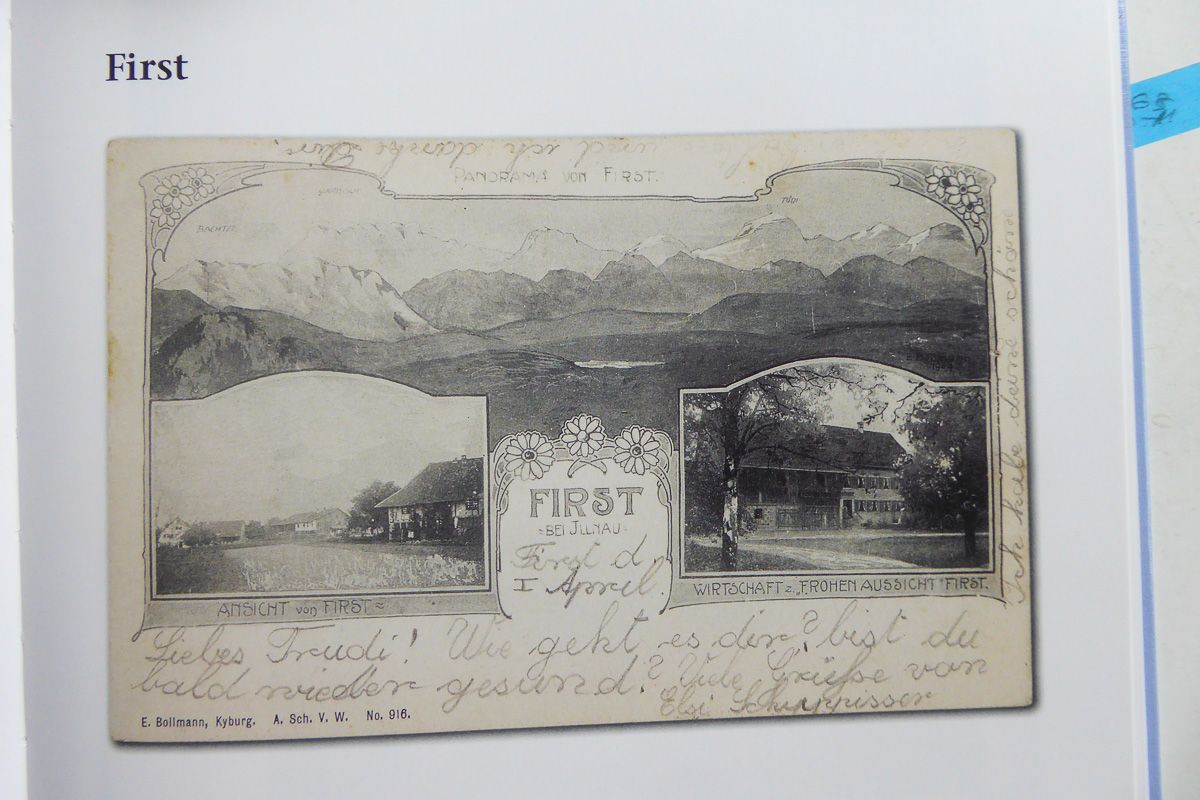 First
und ich danke
PANORAMA VON FIRST.
BACHTEL
TÖDI
FIRST
BEI JLLNAU
First d.
I April.
ANSICHT von FIRST
WIRTSCHAFT z. "FROHEN AUSSICHT" FIRST.
Liebes Trudi! Wie geht es dir? bist du
bald wieder gesund? Viele Grüße von
Elsi
E. Bollmann, Kyburg. A. Sch. V. W. No. 916.
Ich habe deine schöne